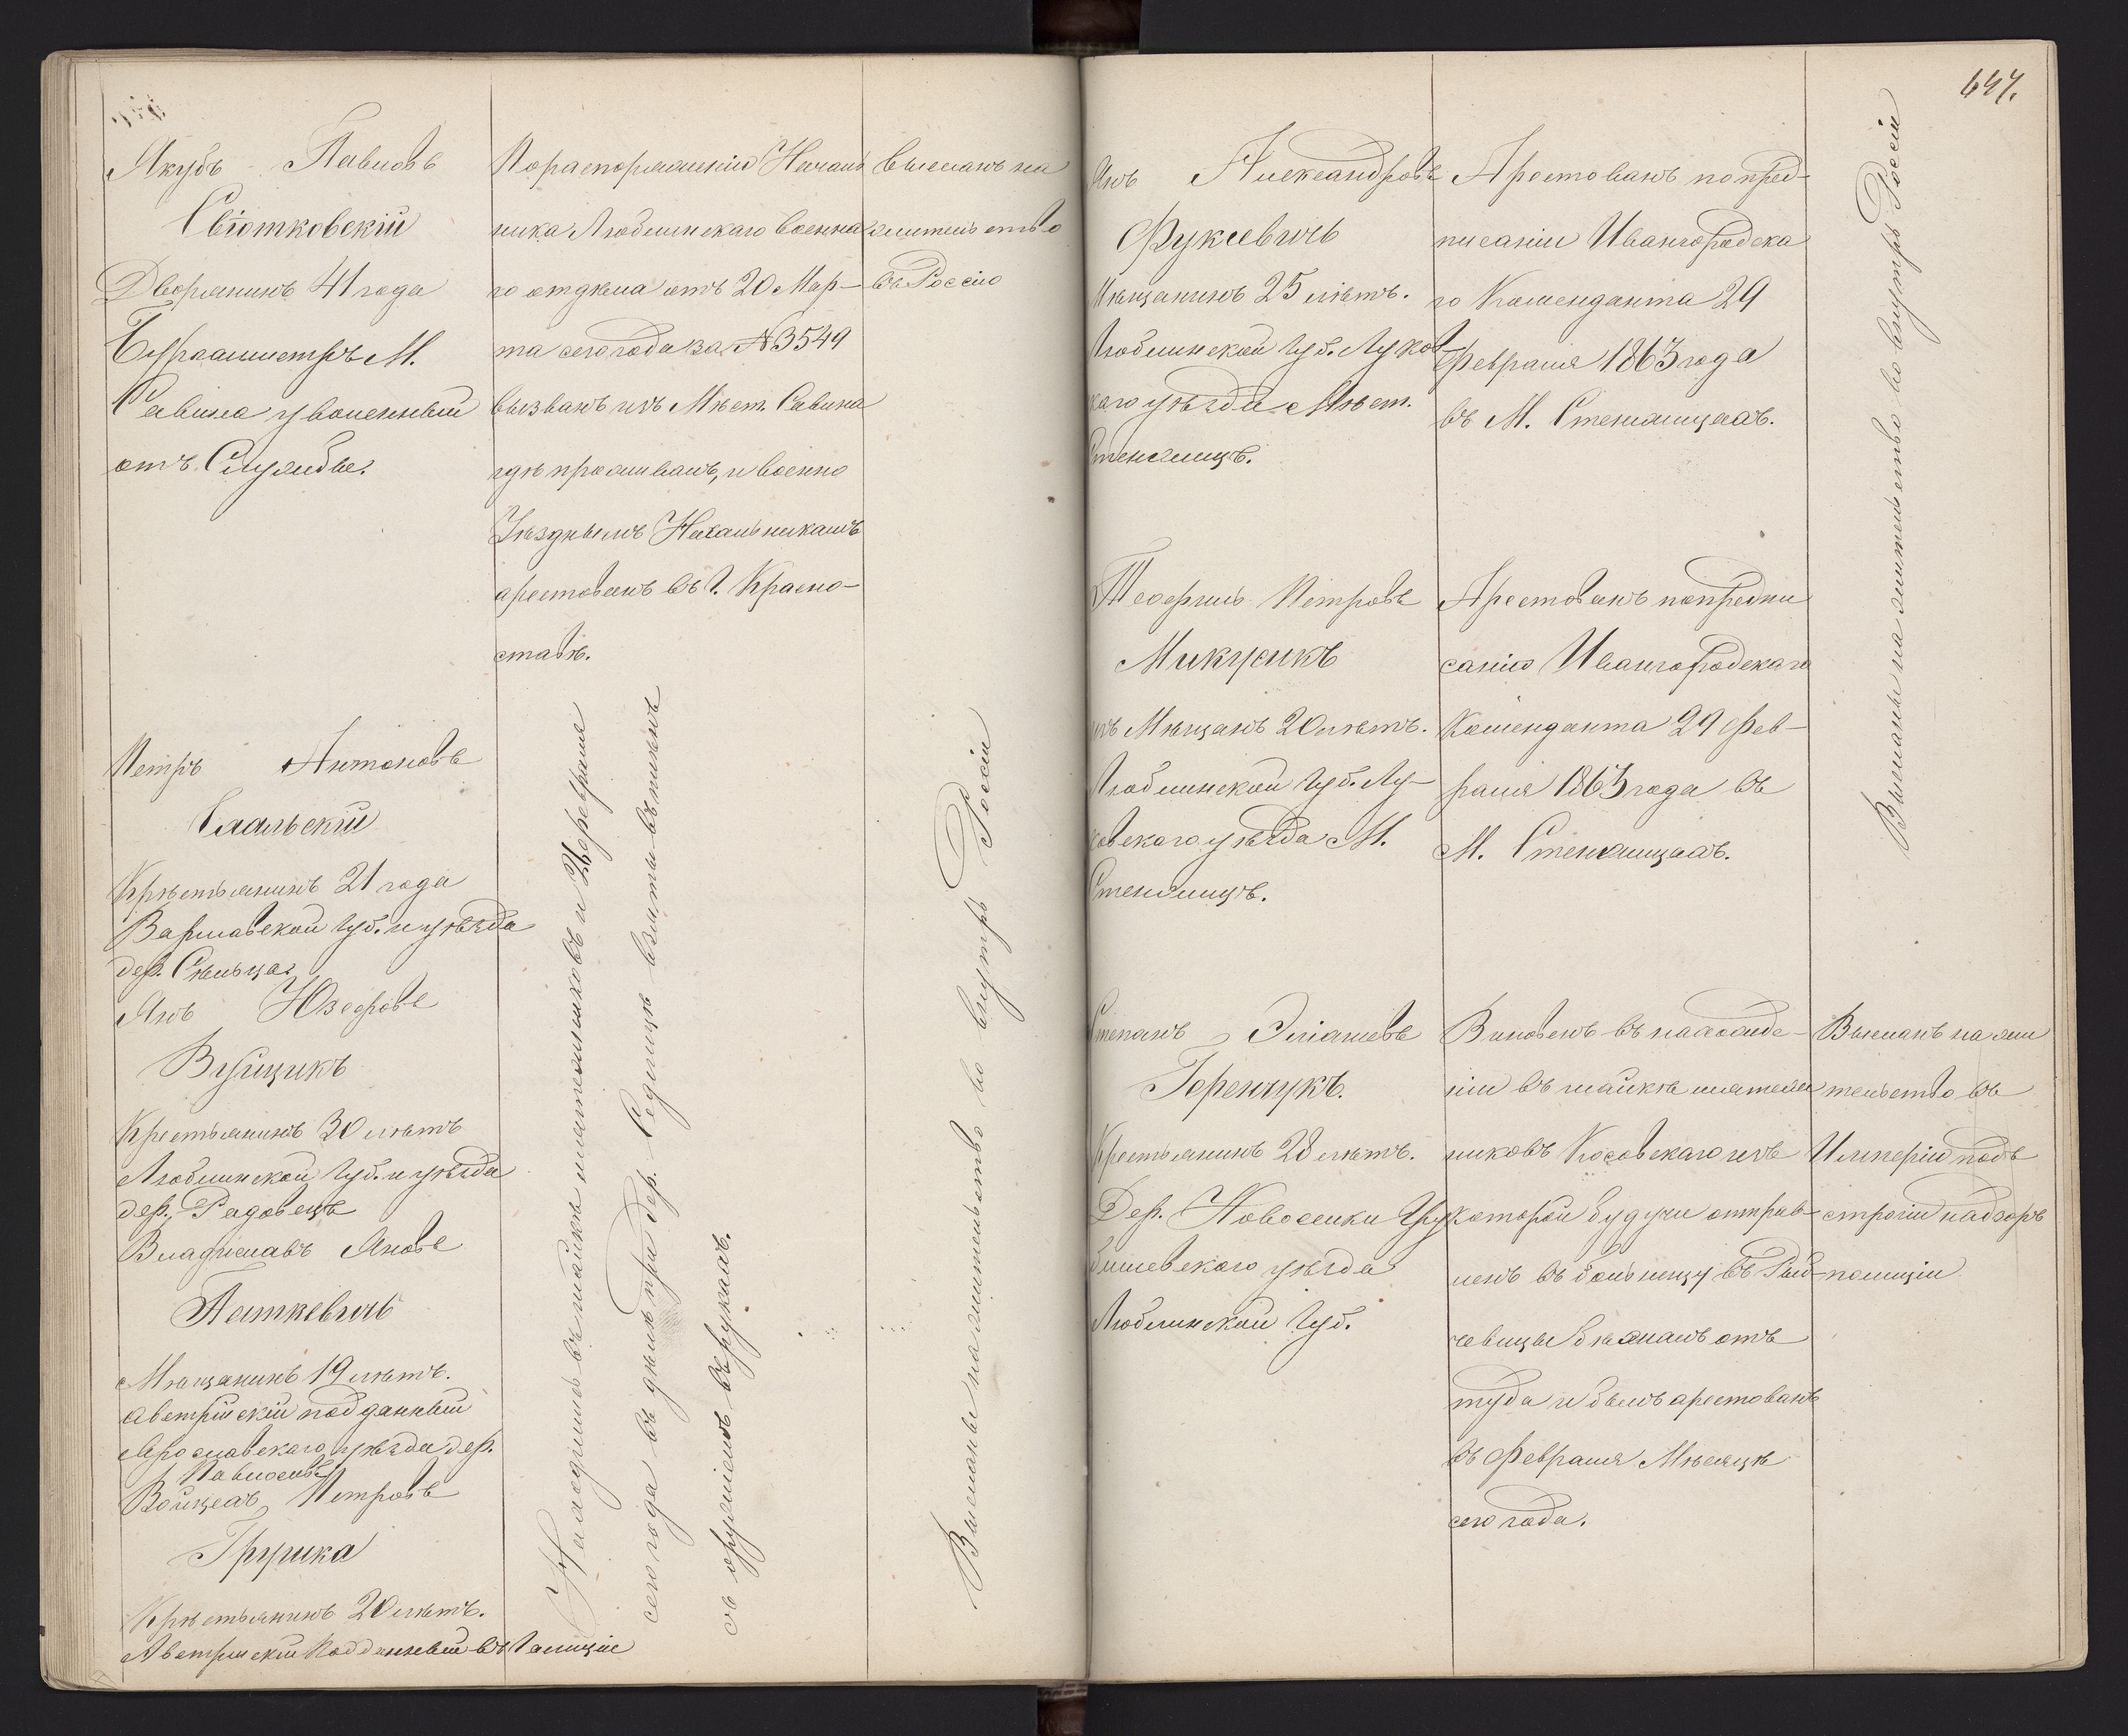 Якубъ Павловъ
Свіотковскій
Дворянинъ 41 года
Бургамистръ М.
Савина уволенный
отъ Службы.
По распоряженію Началь
ника Люблинскаго военна
го отдѣла отъ 20 Мар-
та сего года за № 3549
вызванъ изъ Мѣст. Савина
гдѣ проживалъ, и военно
Уѣзднымъ Начальникамъ
арестованъ въ Г. Красно-
ставѣ.
Высланъ на
жительство
въ Россію
Петръ Антоновъ
Скальскій
Крѣстьянинъ 21 года
Варшавской Губ. и уѣзда
дер. Сѣльца
Янъ Юзефовъ
Вуйцикъ
Крестьянинъ 30 лѣтъ
Люблинской Губ. и уѣзда
дер. Радовецъ
Владиславъ Яновъ
Паткевичъ
Мѣщанинъ 19 лѣтъ.
Австрійскій подданный
Ярославскаго уѣзда дер.
Павлосивъ
Войцехъ Петровъ
Грушка
Крѣстьянинъ 20 лѣтъ.
Австрійскій Подданный въ Галиціи
Находились въ шайкѣ мятежниковъ и Февраля
сего года въ дѣлѣ при дер. Седлице взяты въ плѣнъ
съ оружіемъ въ рукахъ.
Высланы на жительство во внутрь Россіи
647.
Янъ Александровъ
Фуксевичъ
Мѣщанинъ 25 лѣтъ.
Люблинской Губ. Луков
скаго уѣзда Мѣст.
Стенжицъ.
Арестованъ по пред-
писаніи Ивангородска
го Коменданта 29
Февраля 1863 года
въ М. Стенжицахъ.
Теофиль Петровъ
Микусикъ
изъ Мѣщанъ 20 лѣтъ.
Люблинской Губ. Лу-
ковскаго уѣзда М.
Стенжицъ.
Арестованъ по предпи
санію Ивангородскаго
Коменданта 29 Фев-
раля 1863 года въ
М. Стенжицахъ.
Высланы на жительство во внутрь Россіи
Степанъ Эліашевъ
Горенчукъ.
Крестьянинъ 28 лѣтъ.
Дер. Новоселки Гру
бишевскаго уѣзда
Люблинской Губ.
Виновенъ въ нахожде-
ніи въ шайкѣ мятеж
никовъ Косовскаго изъ
которой будучи отправ-
ленъ въ больницу въ Рай-
човицы бѣжалъ отъ
туда и былъ арестованъ
въ Февралѣ Мѣсяцѣ
сего года.
Высланъ на жи
тельство въ
Имперію подъ
строгій надзоръ
полиціи